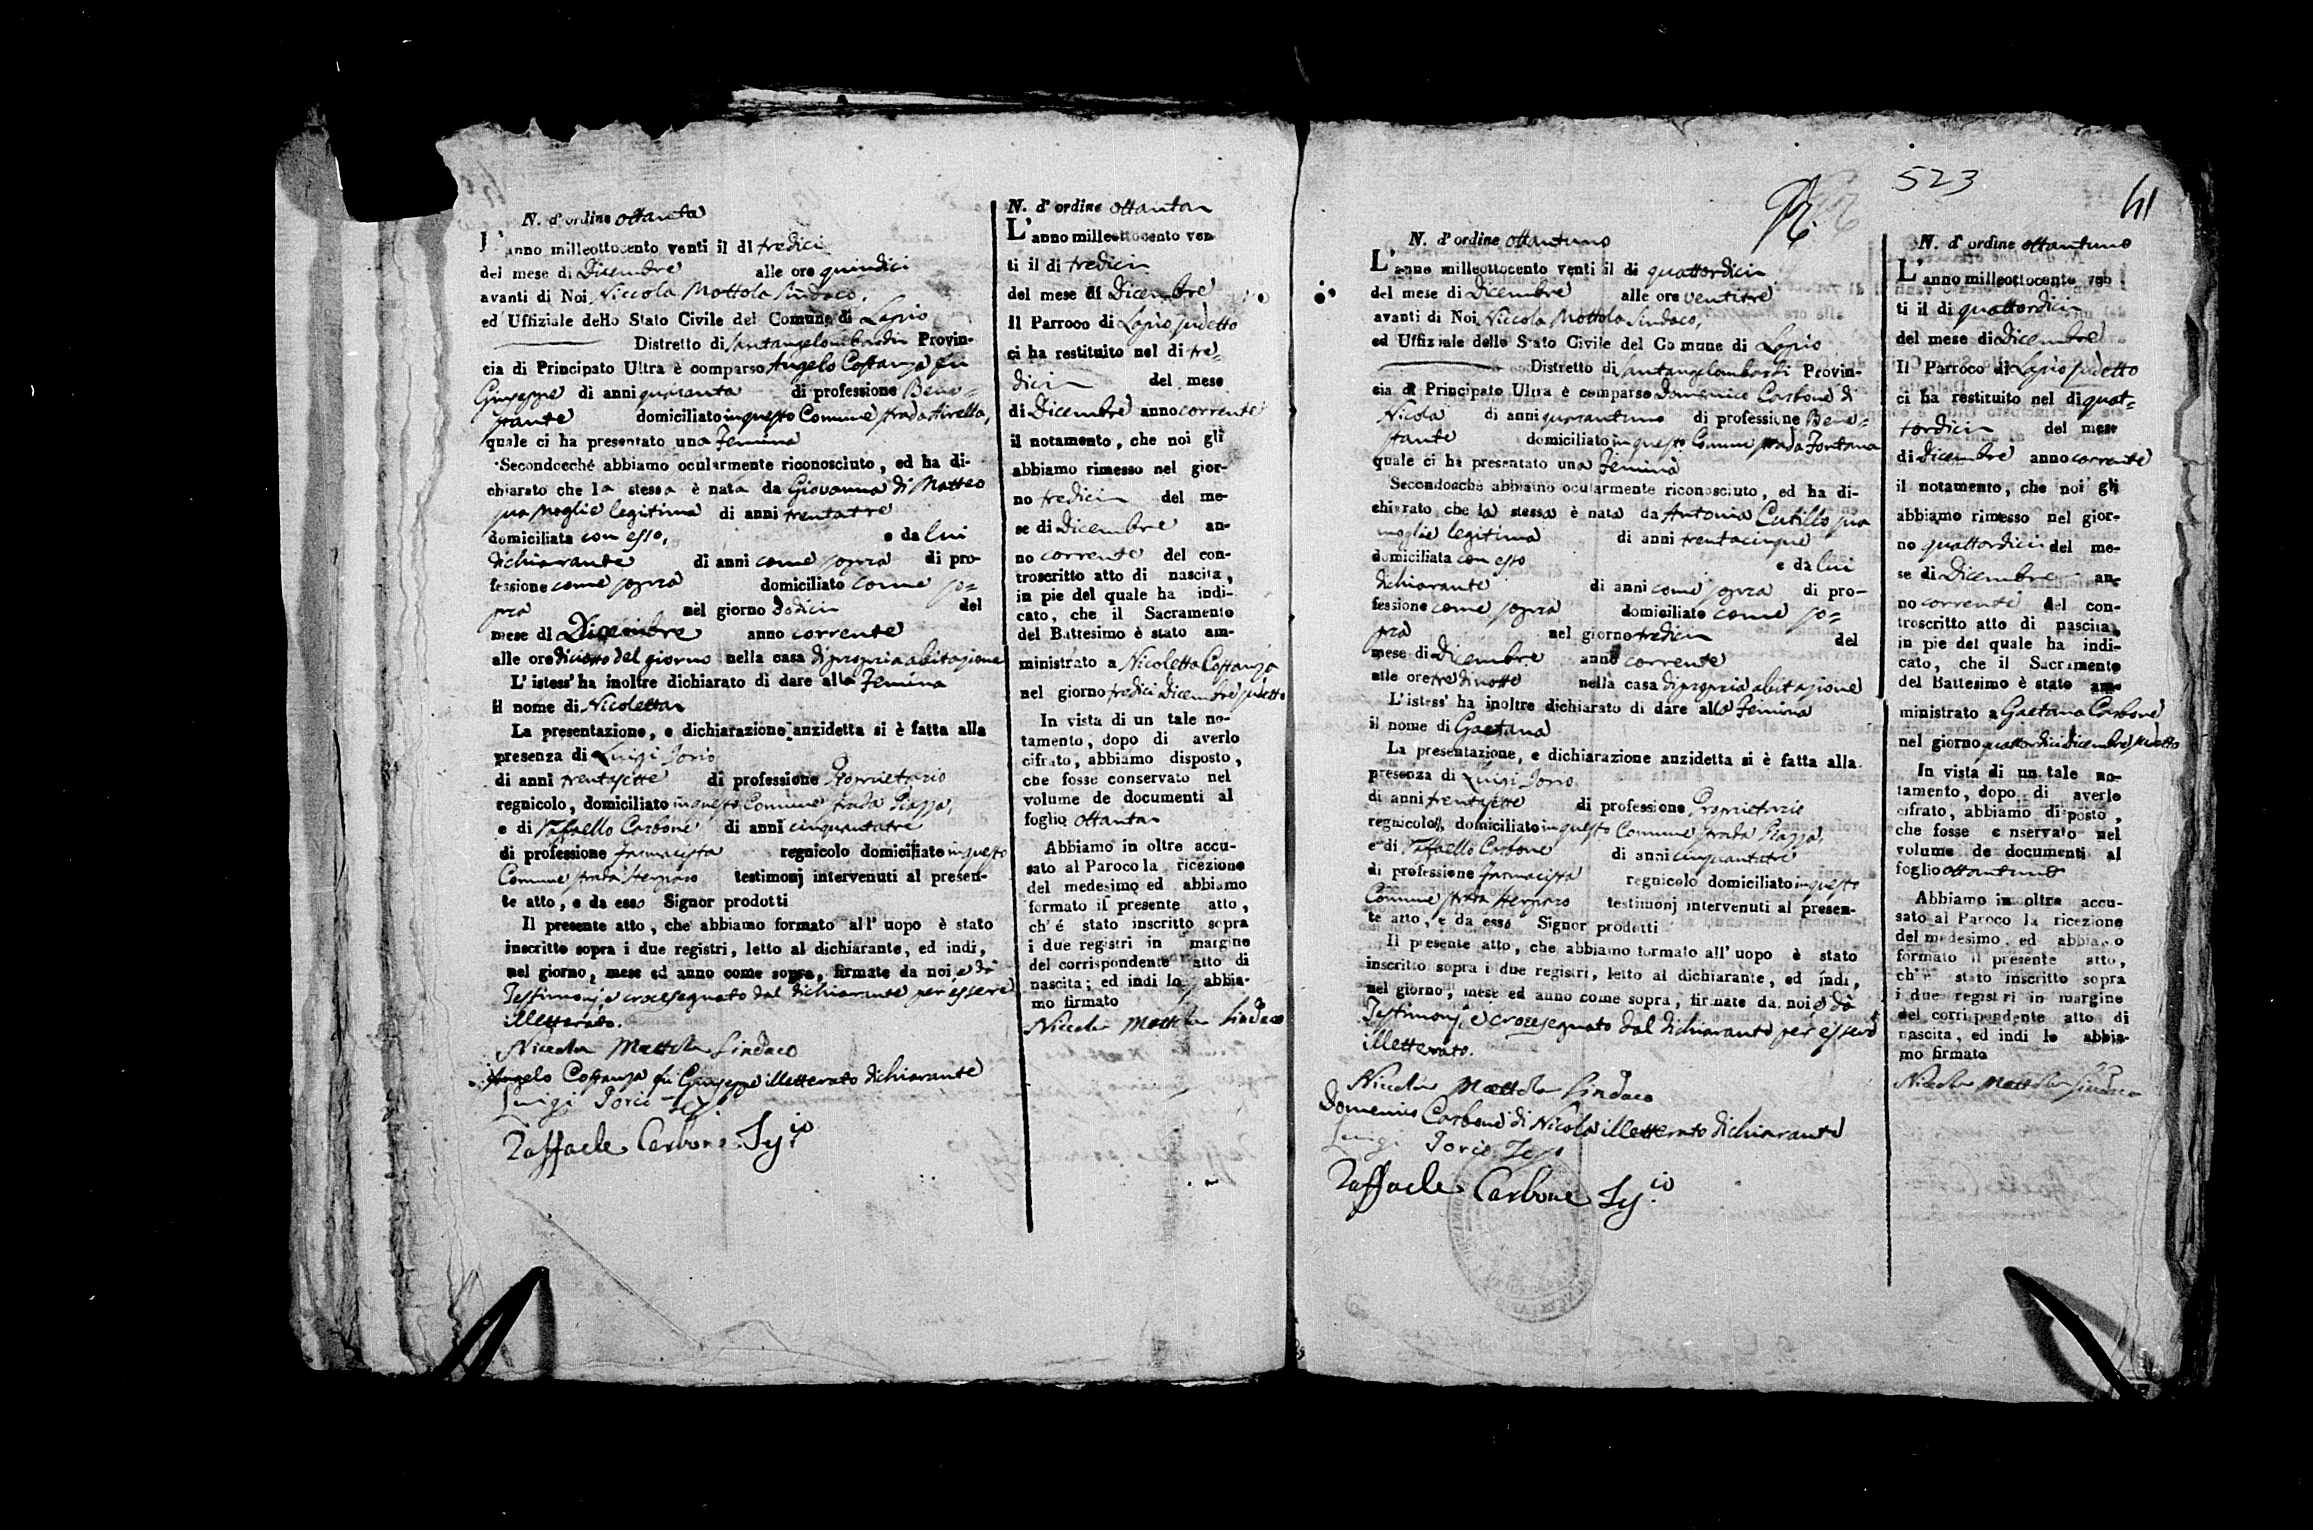 N. d'ordine ottanta
L'anno milleottocento venti il dì tredici
del mese di Dicembre alle ore quindici
avanti di Noi Niccola Mottola Sindaco,
ed Uffiziale dello Stato Civile del Comune di Lapio
Distretto di Santangelombardi Provin-
cia di Principato Ultra è comparso Angelo Costanza fu
Giuseppe di anni quaranta di professione Bene=
stante domiciliato in questo Comune strada
quale ci ha presentato una Femina
Secondocché abbiamo ocularmente riconosciuto, ed ha di-
chiarato che la stessa è nata da Giovanna di Matteo
sua Moglie legitima di anni trentatre
domiciliata con esso, e da lui
dichiarante di anni come sopra di pro-
fessione come sopra domiciliato come so=
pra nel giorno dodici del
mese di Dicembre anno corrente
alle ore diciotto del giorno nella casa di propria abitazione
L'istess' ha inoltre dichiarato di dare alla Femina
il nome di Nicoletta
La presentazione, e dichiarazione anzidetta si è fatta alla
presenza di Luigi Iorio
di anni trentasette di professione Proprietario
regnicolo, domiciliato in questo Comune strada Piazza,
e di Raffaello Carbone di anni cinquantatre
di professione Farmacista regnicolo domiciliato in questo
Comune strada testimonj intervenuti al presen-
te atto, e da esso Signor prodotti
Il presente atto, che abbiamo formato all' uopo è stato
inscritto sopra i due registri, letto al dichiarante, ed indi,
nel giorno, mese ed anno come sopra, firmato da noi e dà
Testimonj, e crocesegnato dal dichiarante per essere
illetterato.
Niccola Mottola Sindaco
Angelo Costanza fu Giuseppe illetterato dichiarante
Luigi Iorio
Raffaele Carbone
N. d'ordine ottanta
L'anno milleottocento ven
ti il dì tredici
del mese di Dicembre
Il Parroco di Lapio sudetto
ci ha restituito nel dì tre=
dici del mese
di Dicembre anno corrente
il notamento, che noi gli
abbiamo rimesso nel gior-
no tredici del me-
se di Dicembre an-
no corrente del con-
troscritto atto di nascita,
in pie del quale ha indi-
cato, che il Sacramento
del Battesimo è stato am-
ministrato a Nicoletta Costanza
nel giorno tredici Dicembre sudetto
In vista di un tale no-
tamento, dopo di averlo
cifrato, abbiamo disposto,
che fosse conservato nel
volume de documenti al
foglio ottanta
Abbiamo in oltre accu-
sato al Paroco la ricezione
del medesimo ed abbiamo
formato il presente atto,
ch'é stato inscritto sopra
i due registri in margine
del corrispondente atto di
nascita; ed indi lo abbia-
mo firmato
Niccola Mottola Sindaco
523
N. d'ordine ottantuno
L'anno milleottocento venti il dì quattordici
del mese di Dicembre alle ore ventitre
avanti di Noi Niccola Mottola Sindaco,
ed Uffiziale dello Stato Civile del Comune di Lapio
Distretto di Santangelombardi Provin-
cia di Principato Ultra è comparso Domenico Carbone di
Nicola di anni quarantuno di professione Bene=
stante domiciliato in questo Comune strada Fontana
quale ci ha presentato una Femina
Secondocchè abbiamo ocularmente riconosciuto, ed ha di-
chiarato che la stessa è nata da Antonia Cutillo sua
moglie legitima di anni trentacinque
domiciliata con esso e da lui
dichiarante di anni come sopra di pro-
fessione come sopra domiciliato come so=
pra nel giorno tredici del
mese di Dicembre anno corrente
alle ore tre di notte nella casa di propria abitazione
L'istess' ha inoltre dichiarato di dare alla Femina
il nome di Gaetana
La presentazione, e dichiarazione anzidetta si è fatta alla
presenza di Luigi Iorio
di anni trentasette di professione Proprietario
regnicolo, domiciliato in questo Comune strada Piazza,
e di Raffaello Carbone di anni cinquantatre
di professione Farmacista regnicolo domiciliato in questo
Comune strada testimonj intervenuti al presen-
te atto, e da esso Signor prodotti
Il presente atto, che abbiamo formato all' uopo è stato
inscritto sopra i due registri, letto al dichiarante, ed indi,
nel giorno, mese ed anno come sopra, firmato da noi e dà
Testimonj, e crocesegnato dal dichiarante per essere
illetterato.
Niccola Mottola Sindaco
Domenico Carbone di Nicola illetterato dichiarante
Luigi Iorio
Raffaele Carbone
N. d'ordine ottantuno
L'anno milleottocento ven
ti il dì quattordici
del mese di Dicembre
Il Parroco di Lapio sudetto
ci ha restituito nel dì quat=
tordici del mese
di Dicembre anno corrente
il notamento, che noi gli
abbiamo rimesso nel gior-
no quattordici del me-
se di Dicembre an-
no corrente del con-
troscritto atto di nascita,
in pie del quale ha indi-
cato, che il Sacramento
del Battesimo è stato am-
ministrato a Gaetana Carbone
nel giorno quattordici Dicembre sudetto
In vista di un tale no-
tamento, dopo di averlo
cifrato, abbiamo disposto,
che fosse conservato nel
volume de documenti al
foglio ottantuno
Abbiamo in oltre accu-
sato al Paroco la ricezione
del medesimo, ed abbiamo
formato il presente atto,
ch'è stato inscritto sopra
i due registri in margine
del corrispondente atto di
nascita, ed indi lo abbia-
mo firmato
Niccola Mottola Sindaco